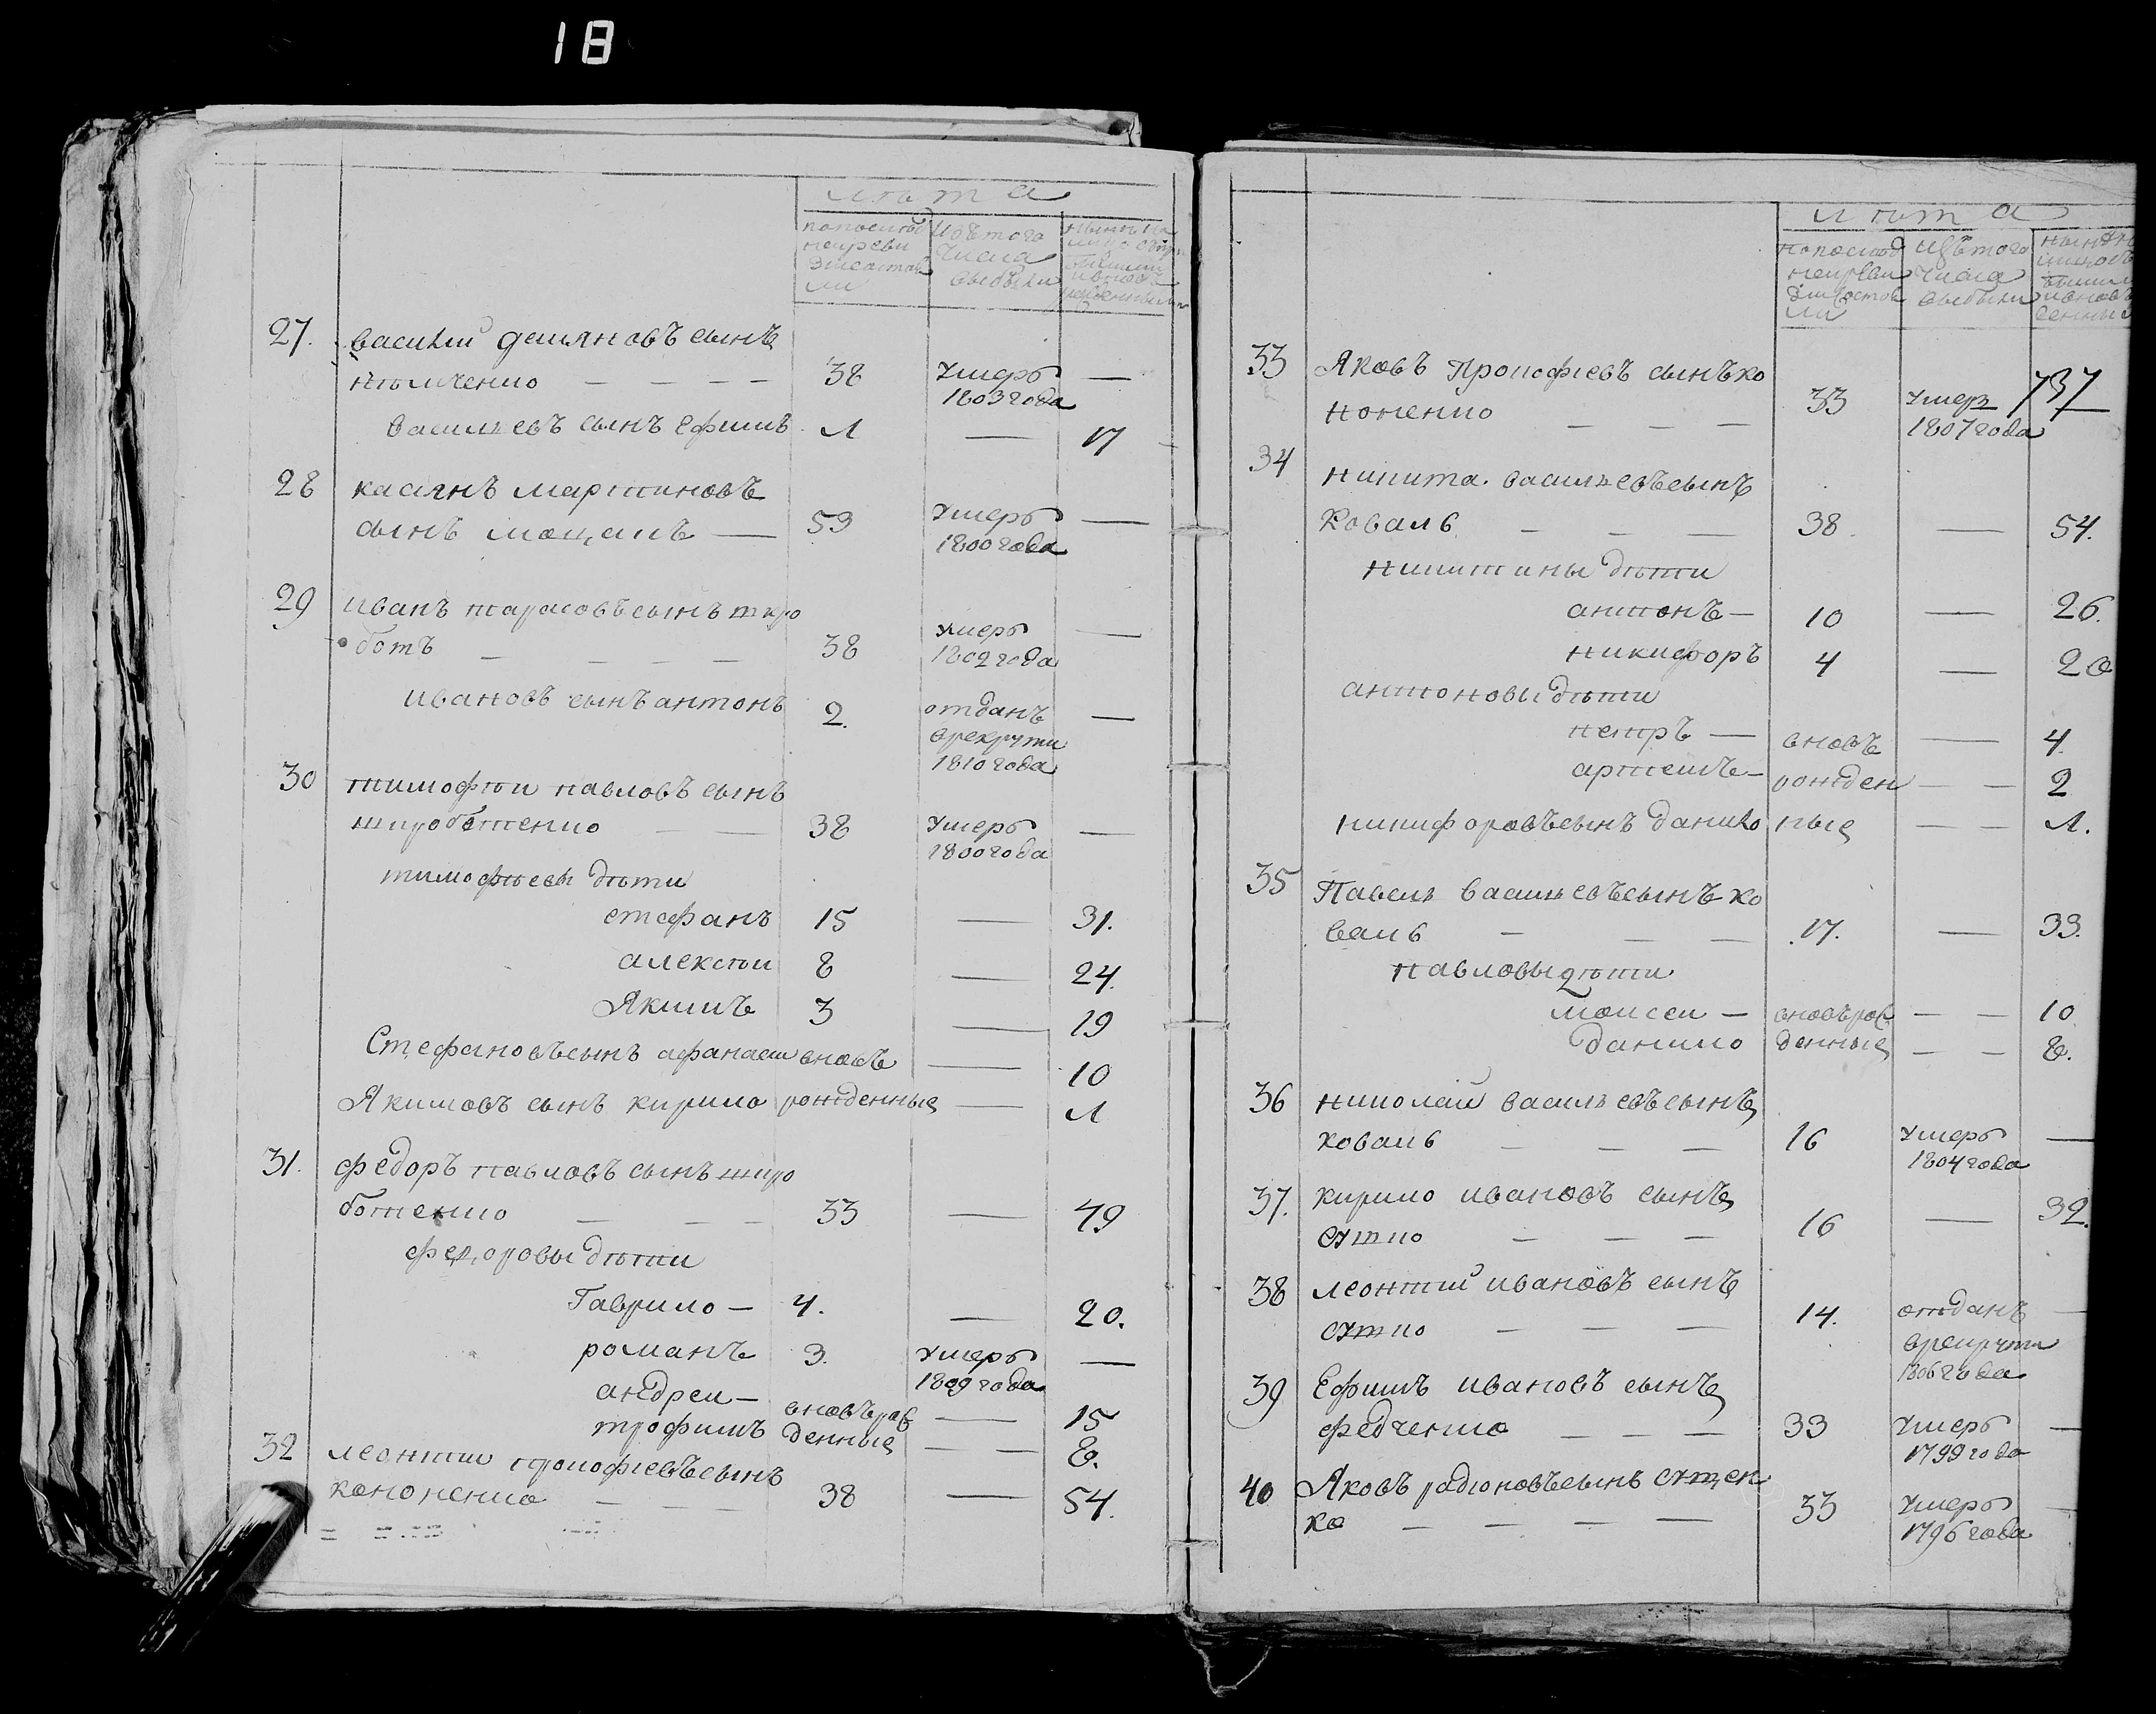 18
лѣта
по послѣд
ней реви
зіи состоя
ли
Изъ того
числа
выбыли
27. василий демяновъ сынъ
38 умеръ —
1803 года
васильевъ сынъ ефимъ 1 — 17
28 касянъ мартиновъ
сынъ — 53 умеръ —
1800 года
29 иванъ тарасовъ сынъ шкро
ботъ — — — — 38 умеръ —
1802 года
ивановъ сынъ антонъ 2. отданъ —
врекруты
1810 года
30 тимофѣи павловъ сынъ
шкроботенко — — 38 умеръ —
1800 года
тимофѣевы дѣти
стефанъ 15 — 31.
алексѣи 8 — 24.
Якимъ 3 — 19
Стефановъ сынъ афанаси вновь — 10
Якимовъ сынъ кирило рожденные — 1
31. федоръ павловъ сынъ шкро
ботенко — — — 33 — 49
федоровы дѣти
Гаврило — 4. — 20.
романъ 3. умеръ —
1809 года
андреи — вновърож — 15
трофимъ денные — — 8.
32 леонти прокофиевъ сынъ
кононенко — — — 38 — 54.
лѣта
по послѣд
ней реви
зіи состоя
ли
Изъ того
числа
выбыли
737
33 Яковъ Прокофиевъ сынъ ко
ноненко — — — 33 умер —
1807 года
34 никита васильевъ сынъ
коваль — — — 38 — 54.
никитины дѣти
антонъ — 10 — 26.
никифоръ 4 — 20
антоновы дѣти
петръ — вновь — 4.
артемъ — рожден — — 2
никифоровъ сынъ данило ные — — 1.
35 Павелъ васильевъ сынъ ко
валь — — — 17. — 33.
павловы дѣти
моисеи — вновърож — — 10
данило денные — — 8.
36 николай васильевъ сынъ
коваль — — — 16 умеръ —
1804 года
37. кирило ивановъ сынъ
сутко — — — 16 — 32.
38 леонтий ивановъ сынъ
сутко — — — 14. отданъ —
врекруты
1806 года
39 Ефимъ ивановъ сынъ
федченко — — — 33 умеръ —
1799 года
40 Яковъ радионовъ сынъ сутен
ко — — — — 33 умеръ —
1796 года